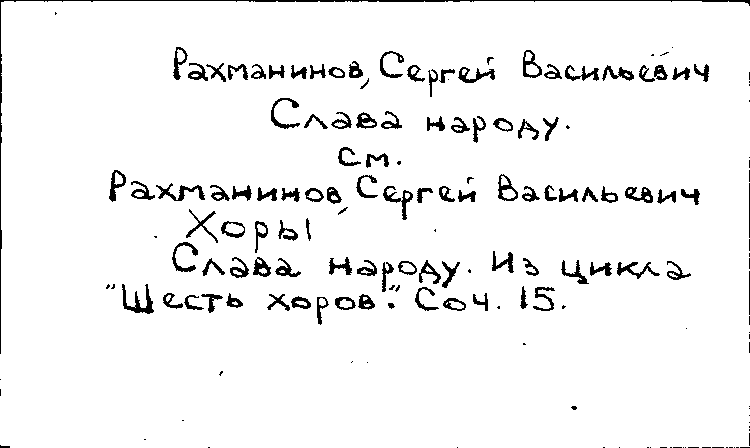 Рахманинов, Сергей Васильевич
Слава народу.
см.
Рахманинов, Сергей Васильевич
Хоры
Слава народу. Из цикла
"Шесть хоров". Соч. 15.